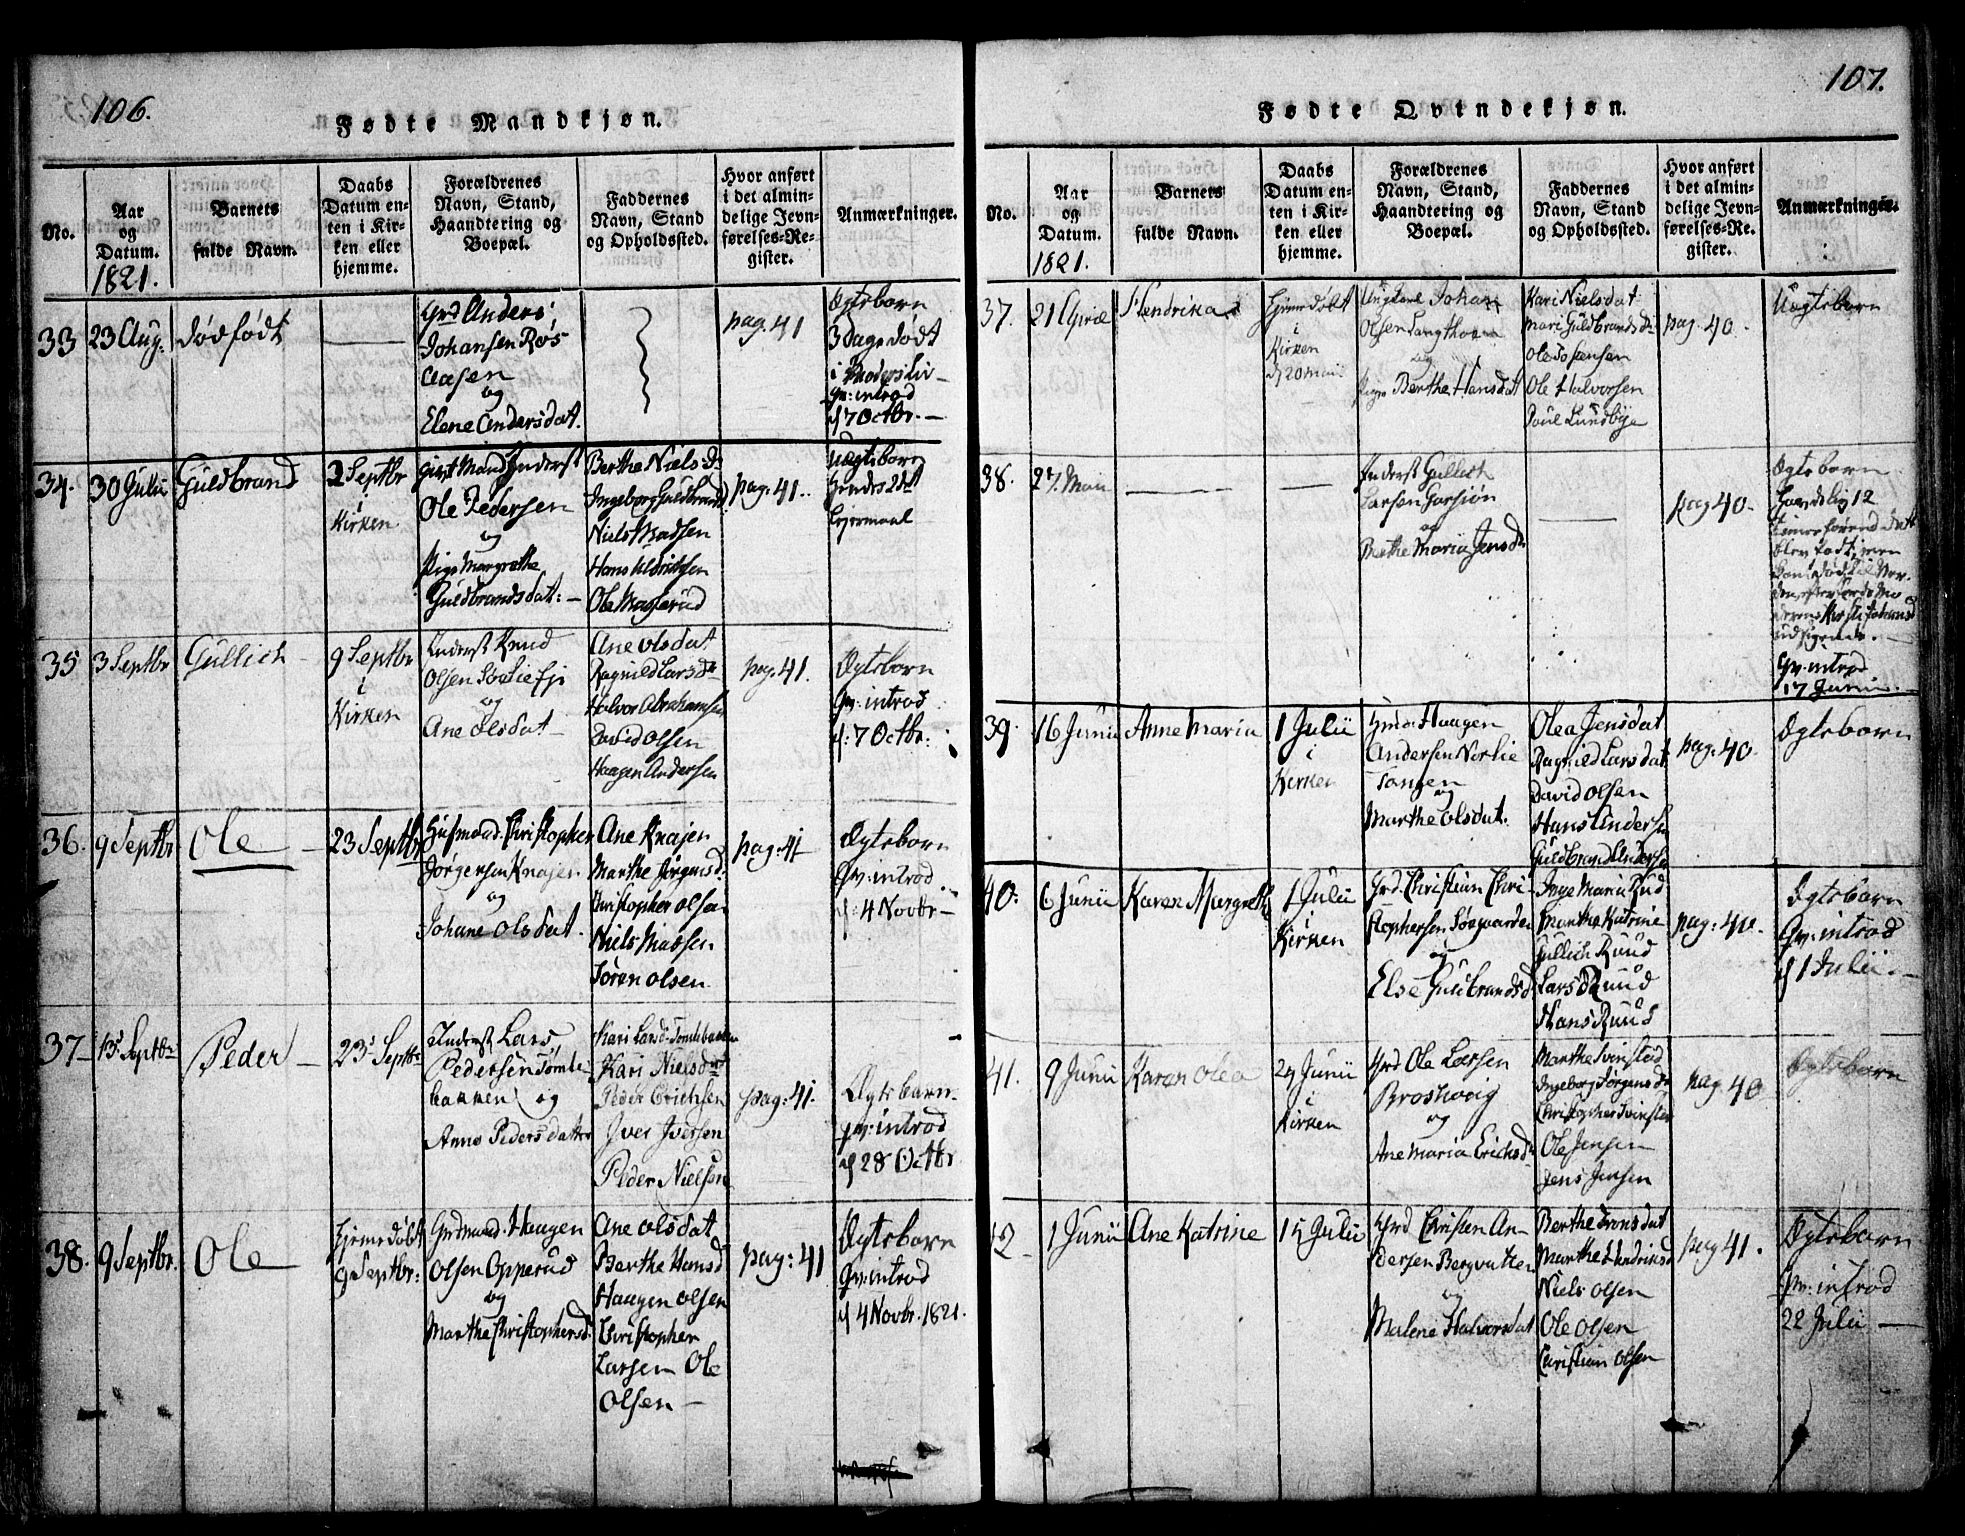 106.
Fødte Mandkjøn.
No.
Aar
og
Datum.
1821.
Barnets
fulde Navn.
Daabs
Datum en-
ten i Kir-
ken eller
hjemme.
Forældrenes
Navn, Stand,
Haandtering og
Boepæl.
Faddernes
Navn, Stand
og Opholdssted.
Hvor anført
i det almin-
delige Jevn-
førelses-Re-
gister.
Anmærkninger.
33
23 Aug.
dødfødt
Grd Anders
Johansen Røs
Aasen
og
Elene Andersdat.
pag. 41
Ægtebarn
3 Dage dødt
i Moders liv
Qv: introd
d 7 Octbr. —
34.
30 Julii
Guldbrand
2 Septbr
i
Kirken
givt Mand Inderst
Ole Pedersen
og
Pige Margrethe
Guldbrandsdat: —
Berthe Niels D:
Ingeborg Guldbrandsd
Niels Madsen
Hans
Ole
pag. 41.
Uægtebarn
hendes 2det
Lejermaal
35
3 Septbr
Gullich
9 Septbr
i
Kirken
Inderst Knud
Olsen
og
Ane Olsdat —
Ane Olsdat
Ragnild Larsd
Halvor Abrahamsen
David Olsen
Haagen Andersen
pag. 41.
Ægtebarn
Qv: introd
d: 7 Octbr:
36.
9 Septbr
Ole
23 Septbr
Huusmand Christopher
Jørgensen Knajer
og
Johane Olsdat.
Ane Knajer
Marthe Jørgensd.
Christopher Olsen
Niels Madsen
Søren Olsen
pag: 41
Ægtebarn
Qv: introd
d: 4 Novbr —
37
13 Septbr
Peder
23 Septbr
Inderst Lars
Pedersen Tømte-
bakken og
Anne Pedersdatter
Kari Larsd. Tømtebakken
Kari Nielsd
Peder Erichsen
Iver Iversen
Peder Nielsen
pag: 41.
Ægtebarn.
qv: introd
d 28 Octbr
38.
9 Septbr.
Ole
Hjemedøbt
9 Septbr:
Grdmand Haagen
Olsen Opperud
og
Marthe Christophersd.
Ane Olsdat
Berthe Hansd
Haagen Olsen
Christopher
Larsen Ole
Olsen —
pag: 41
Ægtebarn
Qv: introd
d 4 Novbr. 1821.
107.
Fødte Qvindekjøn.
No.
Aar
og
Datum.
1821.
Barnets
fulde Navn.
Daabs
Datum en-
ten i Kir-
ken eller
hjemme.
Forældrenes
Navn, Stand,
Haandtering og
Boepæl.
Faddernes
Navn, Stand
og Opholdssted.
Hvor anført
i det almin-
delige Jevn-
førelses-Re-
gister.
Anmærkninger.
37.
21 April
Hendrika
Hjemedøbt
i
Kirken
d 20 Mai
Ungkarl Johan
Olsen
og
Pige Berthe Hansdat
Kari Nielsdat
Mari Guldbrandsd:
Ole
Ole Halvorsen
Poul Lundbye
pag. 40.
Uægtebarn
38.
27 Mai
Inderst Gullich
Larsen
og
Berthe Maria Jensd
pag 40.
Ægtebarn
12
Timer
blev født, men
udsigende. —
Qv: introd
17 Junii.
39.
16 Junii
Anne Maria
1 Julii
i
Kirken
Haagen
Andersen Norlie
Tangen
og
Marthe Olsdat.
Olea Jensdat
Ragnild Larsdat
David Olsen
Hans Andersen
Guldbrand Andersen
pag: 40.
Ægtebarn
40.
6 Junii
Karen Margrethe
1 Julii
i
Kirken
Grd. Christian Chri-
stophersen Søegaarden
og
Else Guldbrandsd
Inge Maria Rud
Marthe Katrine
Gullich Ruud
Lars Ruud
Hans Ruud
pag: 40.
Ægtebarn
Qv: introd
d 1 Julii. —
41.
9 Junii
Karen Olea
24 Junii
i
Kirken
Grd Ole Larsen
Broshovig
og
Ane Maria Erichsd
Marthe Svinstad
Ingeborg Jørgensd
Christopher Svinstad
Ole Jensen
Jens Jensen
pag 40
Ægtebarn
42
1 Junii
Ane Katrine
15 Julii
Grd Christen An-
dersen Bergvatten
og
Malene Halvorsdat
Berthe Tronsdat
Marthe Hendriksd
Niels Olsen
Ole Olsen
Christian Olsen
pag 41.
Ægtebarn
qv: introd
22 Julii —